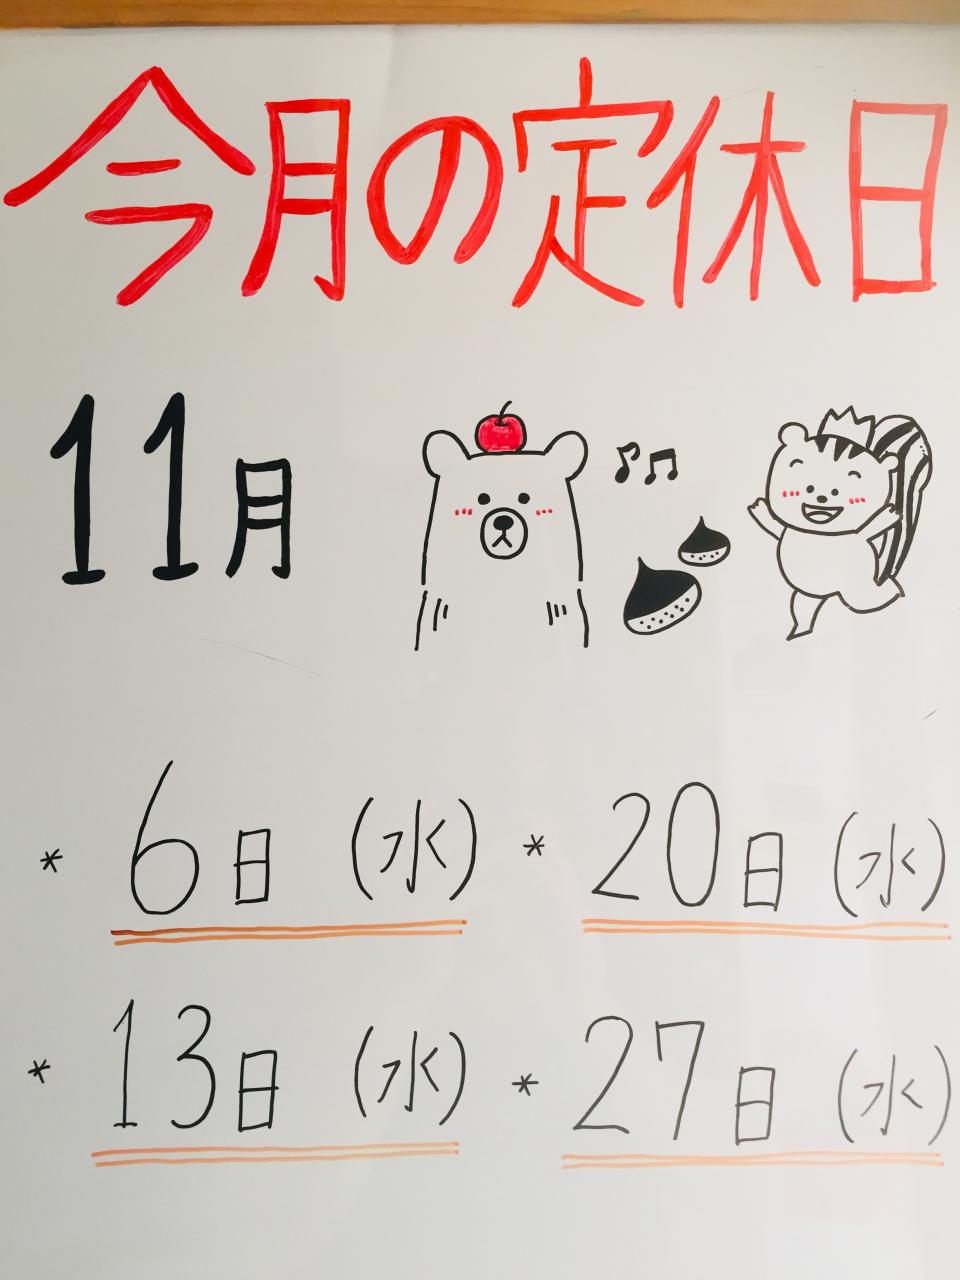 今月の定休日
11月
* 6日 (水) * 20日 (水)
* 13日 (水) * 27日 (水)